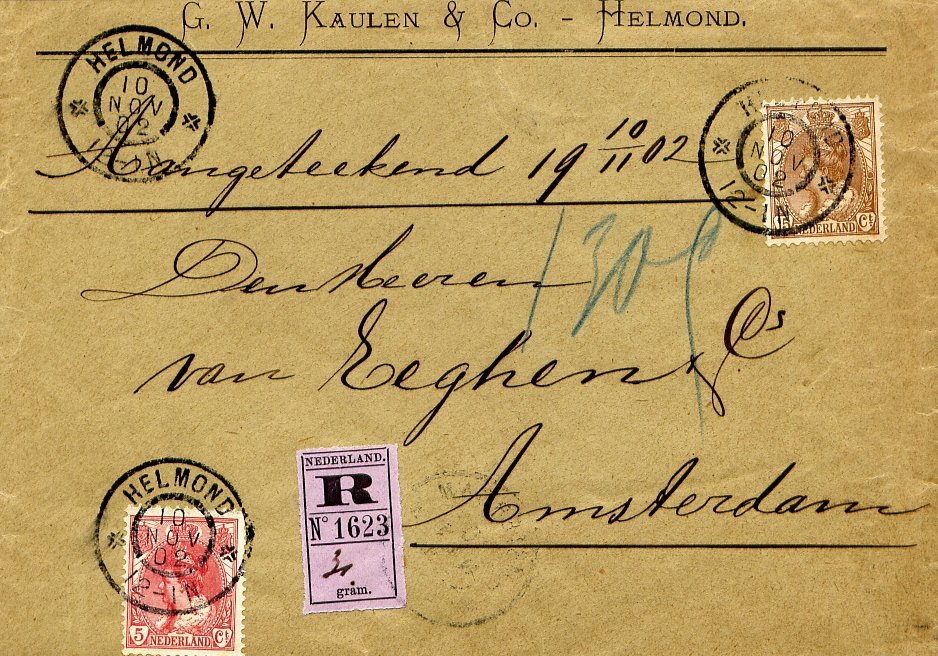 G. W. KAULEN & Co. - HELMOND.
HELMOND
10
NOV
02
12-1N
Aangeteekend 19 10/11 02
HELMOND
10
NOV
02
12-1N
15 NEDERLAND Ct
Den Heeren
van Eeghen & Co
Amsterdam
HELMOND
10
NOV
02
12-1N
5 NEDERLAND Ct
NEDERLAND.
R
No 1623
gram.